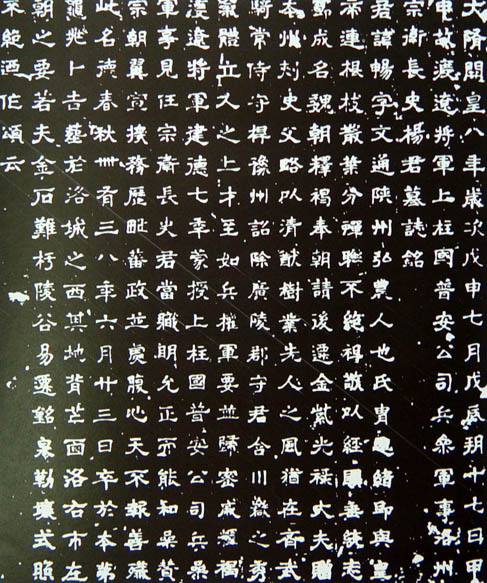 大隋開皇八年歲次戊申七月戊辰朔十七日甲
申故盪邊將軍上柱國普安公司兵參軍事洛州
宗衛長史楊君墓誌銘
君諱暢字文通陝州弘農人也氏胄緒即與皇
帝連根枝散葉分蟬聯不絕祖敬以經國善統志
節成名魏朝釋褐奉朝請後遷金紫光祿大夫贈
本州刺史父略以清猷樹業先人之風猶在齊武
將常侍守桿豫州詔除廣陵郡守君含川嶽之秀
氣體立人之上才至如兵權軍要並歸密戚褐
邊將軍建德七年蒙授上柱國普安公司兵參
軍事見任宗衛長史君當職明允正而能和
宗朝翼宣撲務歷毗蕃政並處腹心天不報善殲
此名德春秋卌有三八年六月廿三日卒於本第
龜兆卜吉藝於洛城之西其地背芒面洛右市左
朝之要若夫金石難朽陵谷易遷銘泉勒壤式照
不絕迺作頌云